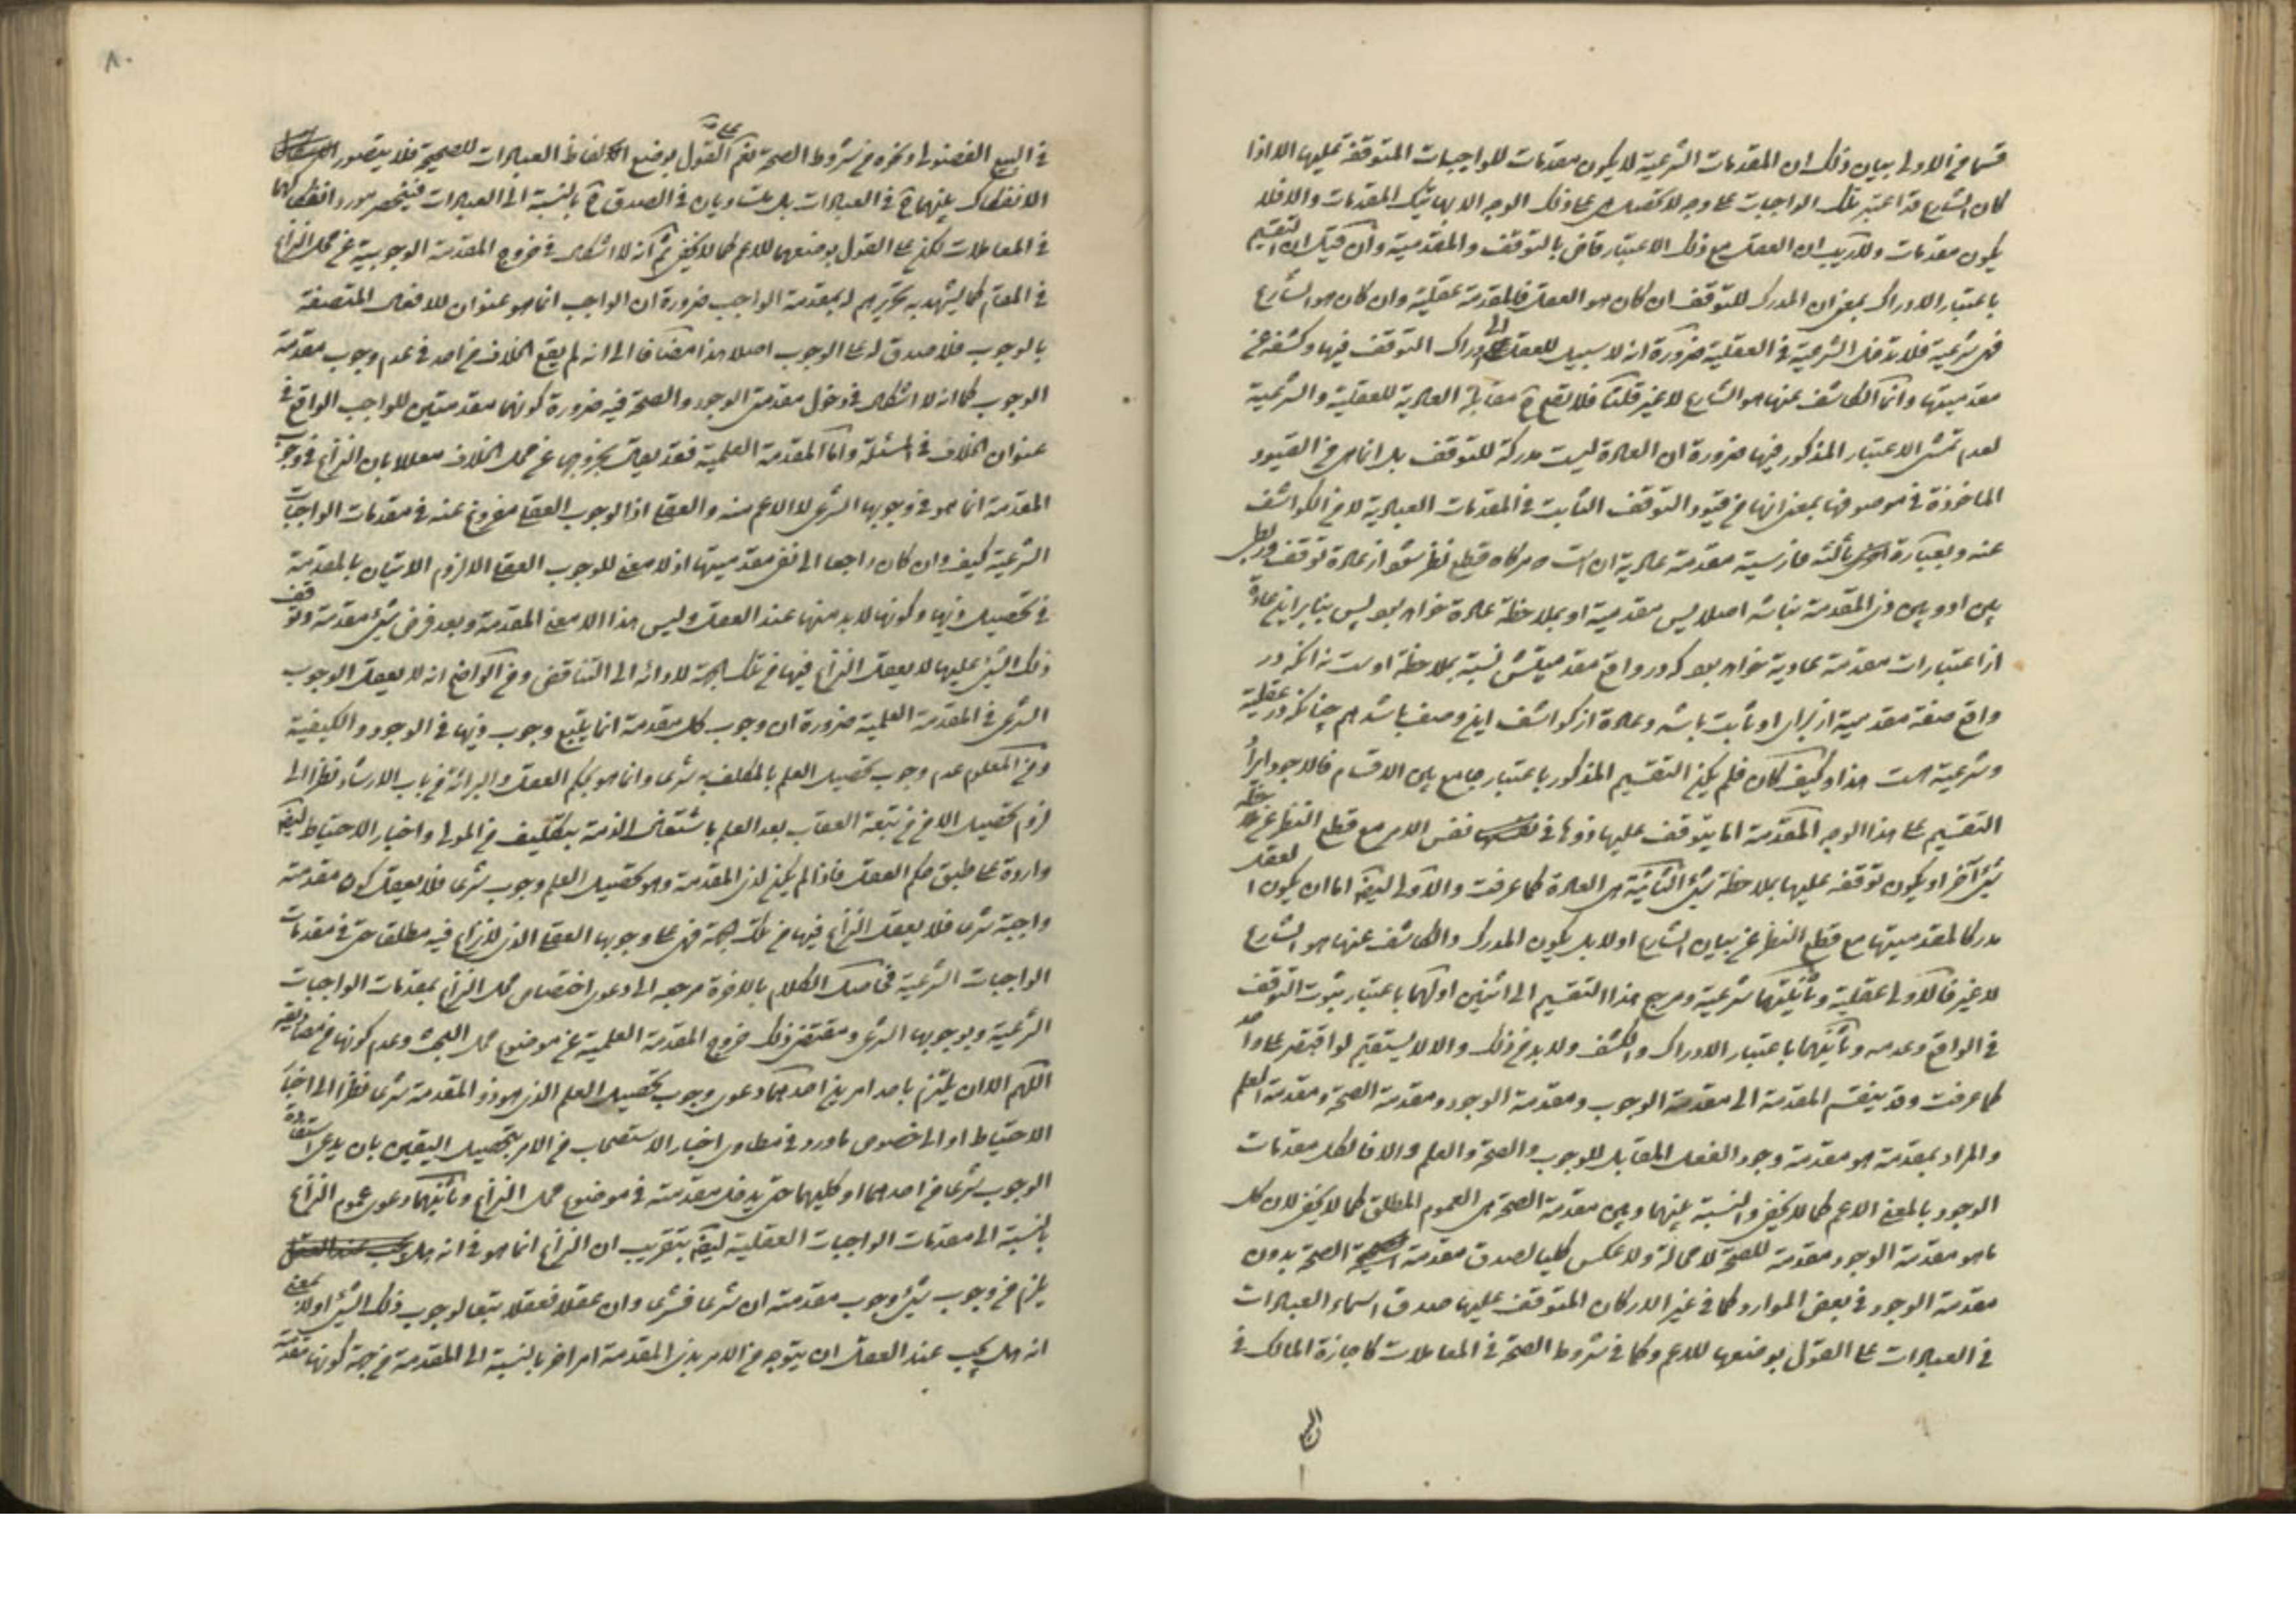 قسما من الاولى بيان ذلك ان المقدمات الشرعية لا يكون مقدمات للواجبات المتوقفة عليها الا اذا
كان الشارع قد اعتبر تلك الواجبات على وجه لا تحصل على ذلك الوجه الا بها تلك المقدمات والا فلا
يكون مقدمات ولا ريب ان العقل مع ذلك الاعتبار قاض بالتوقف والمقدمية وان التقسيم
باعتبار الادراك بمعنى ان المدرك للتوقف ان كان هو العقل فالمقدمة عقلية وان كان هو الشارع
فهي شرعية فلا تدخل الشرعية في العقلية ضرورة انه لا سبيل للعقل الى ادراك التوقف فيها وكشفه عن
مقدميتها وانما الكاشف عنها هو الشارع لا غير قلنا فلا تقع ح مقابلة العادية للعقلية والشرعية
لعدم تمشى الاعتبار المذكور فيها ضرورة ان العادة ليست مدركة للتوقف بل انما هي من القيود
الماخوذة في موصوفها بمعنى انها من قيود التوقف الثابت في المقدمات العادية لا من الكواشف
عنه وبعبارة فارسية مقدمة عادية ان است كه هركاه قطع نظر شود از عادة توقف وربطى
بين او وبين ذى المقدمة نباشد اصلا پس مقدمية او بملاحظة عادة خواهد بود پس بنابراين عادة
از اعتبارات مقدمة عادية خواهد بود كه در واقع مقدميتش نسبة بملاحظة اوست نه انكه در
واقع صفة مقدمية از براى او ثابت باشد وعادة از كواشف اين وصف باشد هم چنانكه در عقلية
وشرعية است هذا وكيف كان فلم يكن التقسيم المذكور باعتبار جامع بين الاقسام فالاجود ايراد
التقسيم على هذا الوجه المقدمة اما يتوقف عليها ذوها في نفس الامر مع قطع النظر عن ملاحظة
شئ آخر او يكون توقفه عليها بملاحظة شئ الثانية هى العادة كما عرفت والاولى ايضا اما ان يكون العقل
مدركا لمقدميتها مع قطع النظر عن بيان الشارع او لا بل يكون المدرك والكاشف عنها هو الشارع
لا غير فالاولى عقلية وثانيتهما شرعية ومرجع هذا التقسيم الى اثنين اولهما باعتبار ثبوت التوقف
في الواقع وعدمه وثانيهما باعتبار الادراك والكشف ولا بد من ذلك والا لا يستقيم لو اقتصر على واحد
كما عرفت وقد ينقسم المقدمة الى مقدمة الوجوب ومقدمة الوجود ومقدمة الصحة ومقدمة العلم
والمراد بمقدمة هو مقدمة وجود الفعل المقابل للوجوب والصحة والعلم والا فالكل مقدمات
الوجود بالمعنى الاعم كما لا يخفى والنسبة بينهما وبين مقدمة الصحة هى العموم المطلق كما لا يخفى لان كل
ما هو مقدمة الوجود مقدمة للصحة لا محالة ولا عكس كليا لصدق مقدمة الصحة بدون
مقدمة الوجود في بعض الموارد كما في غير الاركان المتوقف عليها صدق اسماء العبادات
في العبادات على القول بوضعها للاعم وكما في شروط الصحة في المعاملات كاجازة المالك في
٨٠
في البيع الفضولى ونحوه من شروط الصحة نعم على القول بوضع الفاظ العبادات للصحيح فلا يتصور
الانفكاك بينهما ح في العبادات بل يتساويان في الصدق ح بالنسبة الى العبادات فينحصر مورد انفكاكهما
في المعاملات لكن على القول بوضعها للاعم كما لا يخفى ثم انه لا اشكال في خروج المقدمة الوجوبية عن محل النزاع
في المقام كما يشهد به تحريرهم له بمقدمة الواجب ضرورة ان الواجب انما هو عنوان للافعال المتصفة
بالوجوب فلا صدق له على الوجوب اصلا هذا مضافا الى انه لم يقع الخلاف من احد في عدم وجوب مقدمة
الوجوب كما انه لا اشكال في دخول مقدمتى الوجود والصحة فيه ضرورة كونهما مقدمتين للواجب الواقع في
عنوان الخلاف في المسئلة واما المقدمة العلمية فقد يقال بخروجها عن محل الخلاف معللا بان النزاع في وجوب
المقدمة انما هو في وجوبها الشرعى لا الاعم منه والعقلى اذ الوجوب العقلى مفروغ عنه في مقدمات الواجبات
الشرعية كيف وان كان راجعا الى نفى مقدميتها اذ لا معنى للوجوب العقلى الا لزوم الاتيان بالمقدمة
في تحصيل ذيها وكونها لابد منها عند العقل وليس هذا الا معنى المقدمة وبعد فرض شئ مقدمة وتوقف
ذلك الشئ عليها لا يعقل النزاع فيها من تلك الجهة لادائه الى التناقض ومن الواضح انه لا يعقل الوجوب
الشرعى في المقدمة العلمية ضرورة ان وجوب كل مقدمة انما يتبع وجوب ذيها في الوجود والكيفية
ومن المعلوم عدم وجوب تحصيل العلم بالمكلف به شرعا وانما هو بحكم العقل والبرائة من باب الارشاد نظرا الى
لزوم تحصيل الامن من تبعة العقاب بعد العلم باشتغال الذمة بتكليف من المولى واخبار الاحتياط ايضا
واردة على طبق حكم العقل فاذا لم يكن لذى المقدمة وهو تحصيل العلم وجوب شرعا فلا يعقل كون مقدمته
واجبة شرعا فلا يعقل النزاع فيها من تلك الجهة فهى على وجوبها العقلى الذى لا نزاع فيه مطلقا حتى في مقدمات
الواجبات الشرعية فحاصل الكلام بالاخرة مرجعه الى دعوى اختصاص محل النزاع بمقدمات الواجبات
الشرعية وبوجوبها الشرعى ومقتضى ذلك خروج المقدمة العلمية عن موضوع محل البحث وعدم كونها من مصاديقه
اللهم الا ان يلتزم باحد امرين احدهما دعوى وجوب تحصيل العلم الذى هو ذو المقدمة شرعا نظرا الى اخبار
الاحتياط او الى خصوص ما ورد في مطاوى اخبار الاستصحاب من الامر بتحصيل اليقين بان يدعى استفادة
الوجوب شرعا من احدهما او كليهما حتى يدخل مقدمته في موضوع محل النزاع وثانيهما دعوى عموم النزاع
بالنسبة الى مقدمات الواجبات العقلية ايضا بتقريب ان النزاع انما هو في انه هل
يلزم من وجوب شئ وجوب مقدمته ان شرعا فشرعا وان عقلا فعقلا تبعا لوجوب ذلك الشئ او لا بمعنى
انه هل يجب عند العقل ان يتوجه من الامر بذى المقدمة امر اخر بالنسبة الى المقدمة من جهة كونها مقدمة